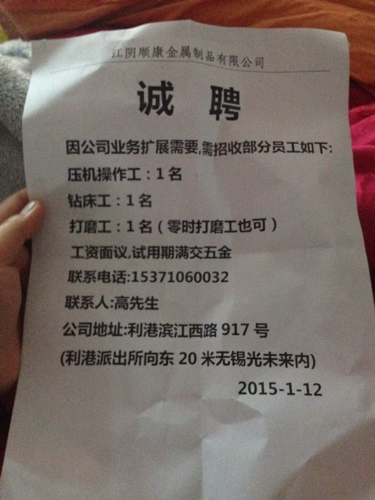 江阴顺康金属制品有限公司
诚 聘
因公司业务扩展需要,需招收部分员工如下:
压机操作工：1名
钻床工：1名
打磨工：1名（零时打磨工也可）
工资面议,试用期满交五金
联系电话:15371060032
联系人:高先生
公司地址:利港滨江西路 917 号
(利港派出所向东 20 米无锡光未来内)
2015-1-12